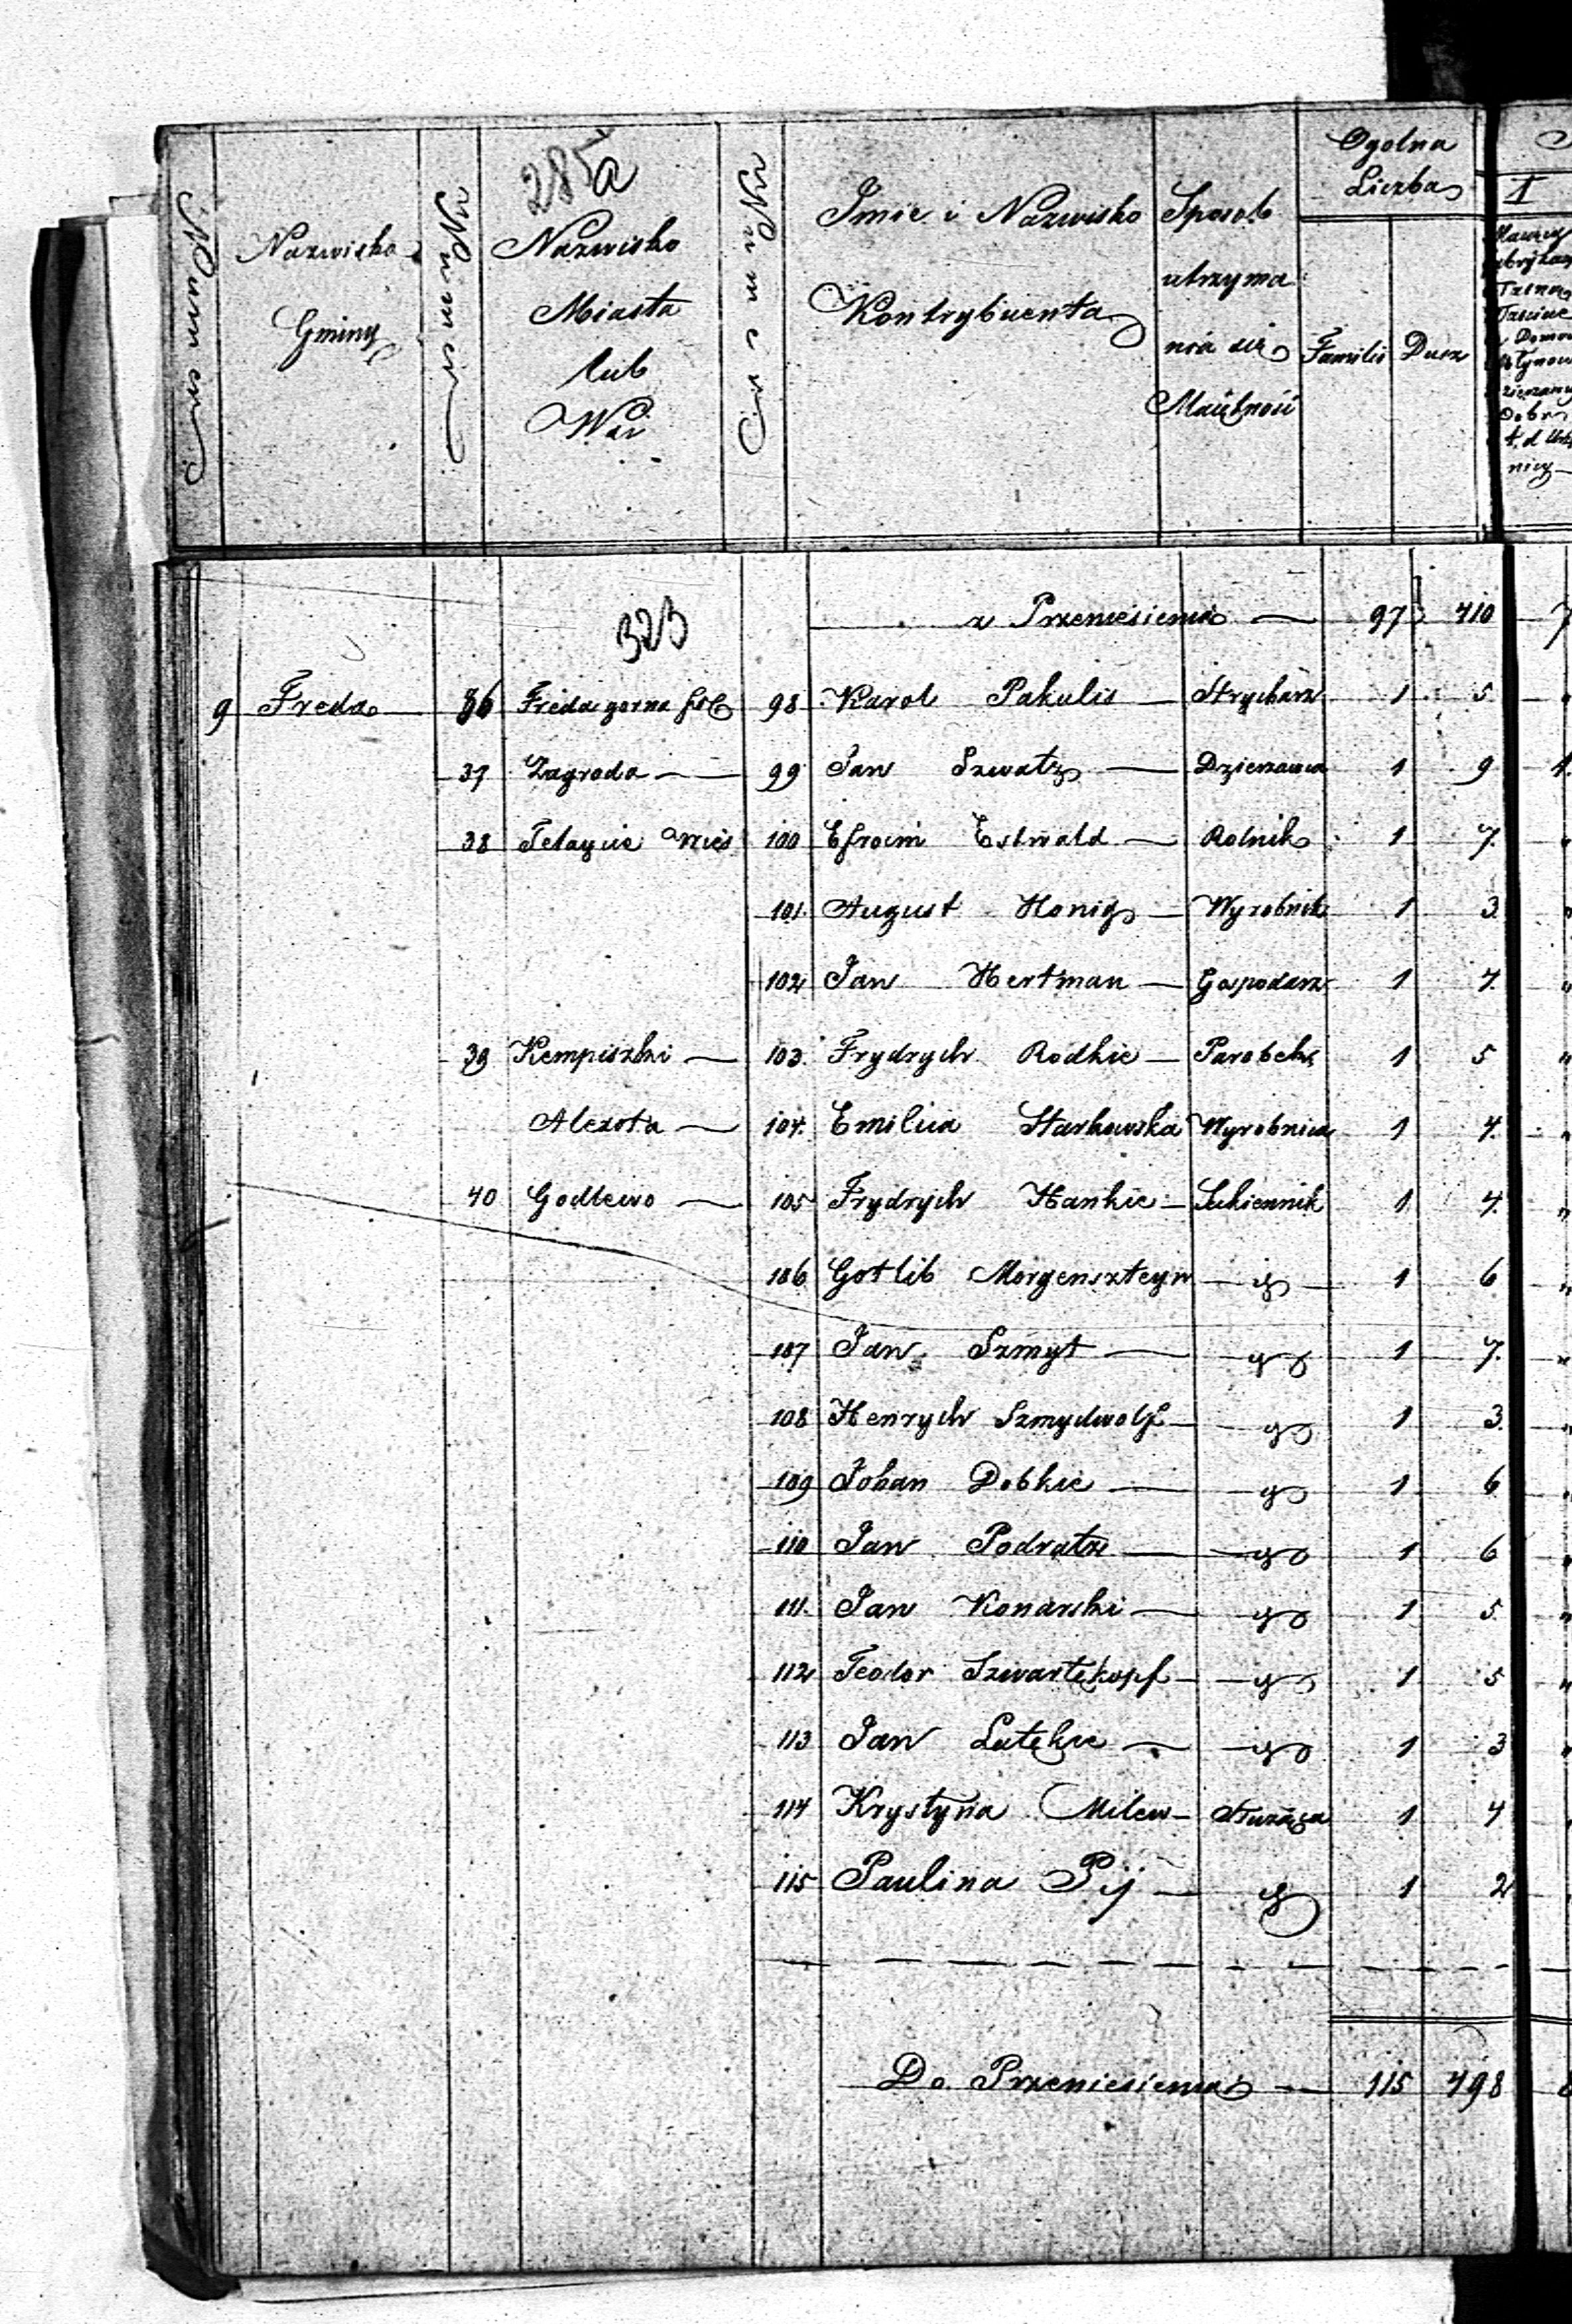 285a
Numer
Nazwisko Gminy
Numer
Nazwisko Miasta lub Wsi
Numer
Imie i Nazwisko Kontrybuenta
Sposob utrzyma nia się Maiętność
Ogolna Liczba
Familii Dusz
1
323
z Przeniesienia — 97 410
9 Freda 36 Freda gorna folw 98 Karol Pakulis — Strycharz 1 5
37 Zagroda — 99 Jan Szwatz — Dzierzawca 1 9
38 Telaycie Wieś 100 Efroim Estwald — Rolnik 1 7
101 August Honig — Wyrobnik 1 3
102 Jan Hertman — Gospodarz 1 4
39 Kempiszki — 103 Frydrych Rodkie — Parobek 1 5
Alexota — 104 Emilija Starkowska Wyrobnica 1 4
40 Godlewo — 105 Frydrych Hankie — Sukiennik 1 4
106 Gotlib Morgenszteyn 1 6
107 Jan Szmyt — 1 7
108 Henrych Szmydwolf — 1 3
109 Johan Dobkie — 1 6
110 Jan Podratz — 1 6
111 Jan Konarski — 1 5
112 Teodor Szwartzkopf — 1 5
113 Jan Lutzkie — 1 3
114 Krystyna Milew — Służąca 1 4
115 Paulina Pij — 1 2
Do Przeniesienia — 115 498